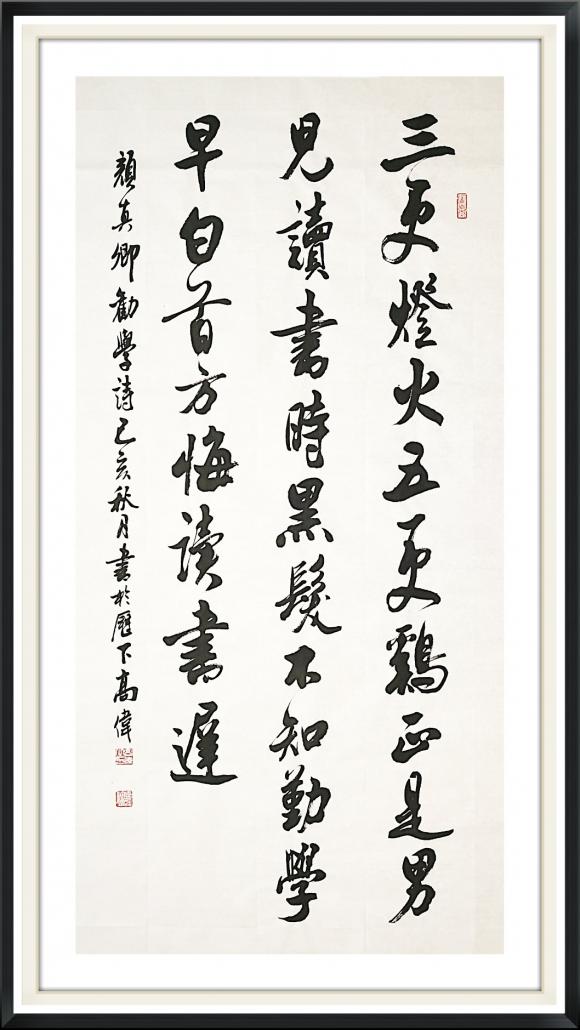 三更燈火五更鷄正是男
児讀書時黒髮不知勤學
早白首方悔读書遲
顔真卿勸學詩己亥秋月書於歷下高偉